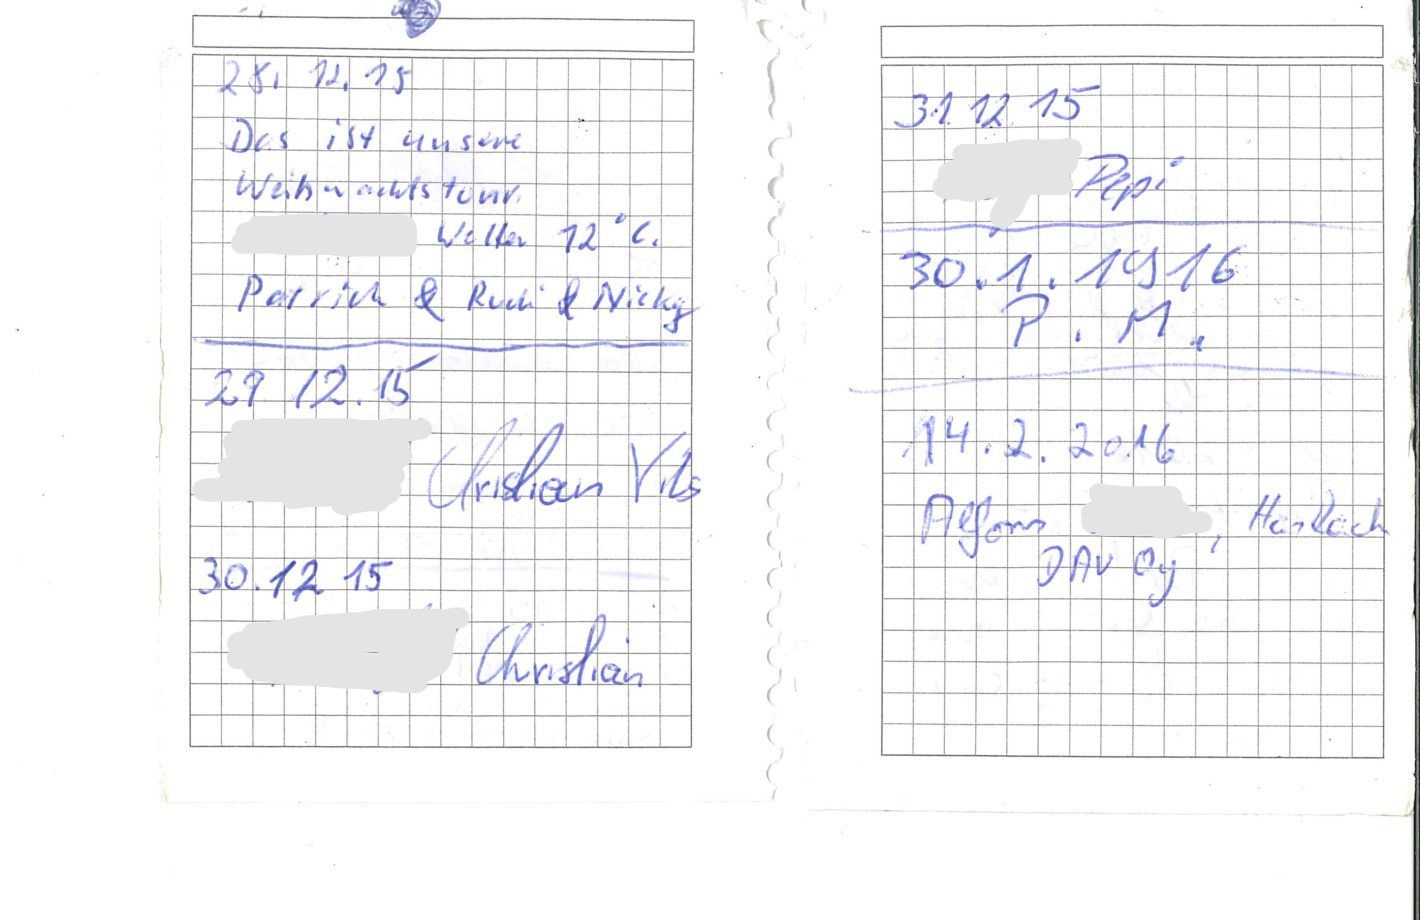 28. 12. 15
Das ist unsere
Weihnachtstour.
Wetter 12°C.
Patrick & Rudi & Nicky
29 12. 15
Christian Vils
30. 12 15
Christian
31. 12 15
Pepi
30. 1. 1916
P. M.
14. 2. 2016
Alfons , Haslach
DAV Oy